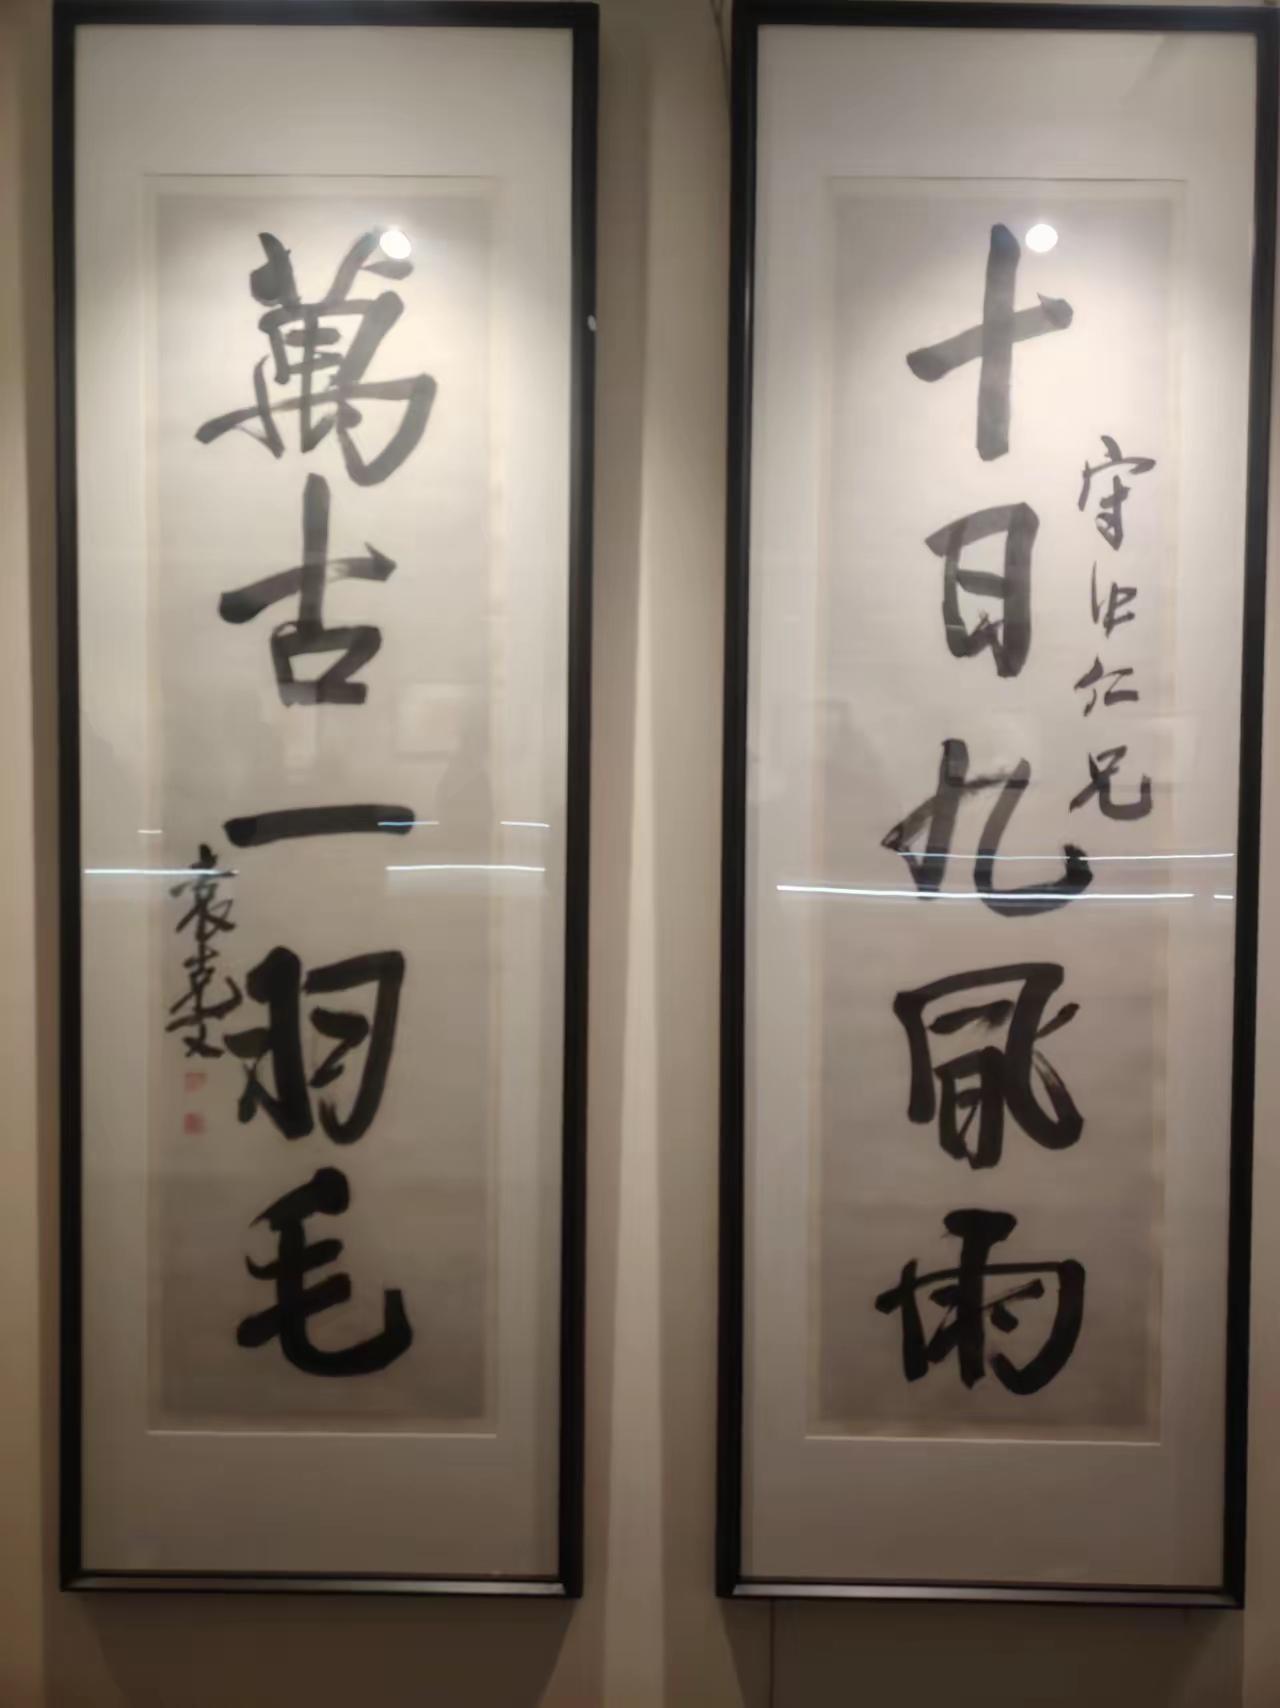 十日九風雨
守仁兄
萬古一羽毛
袁克文